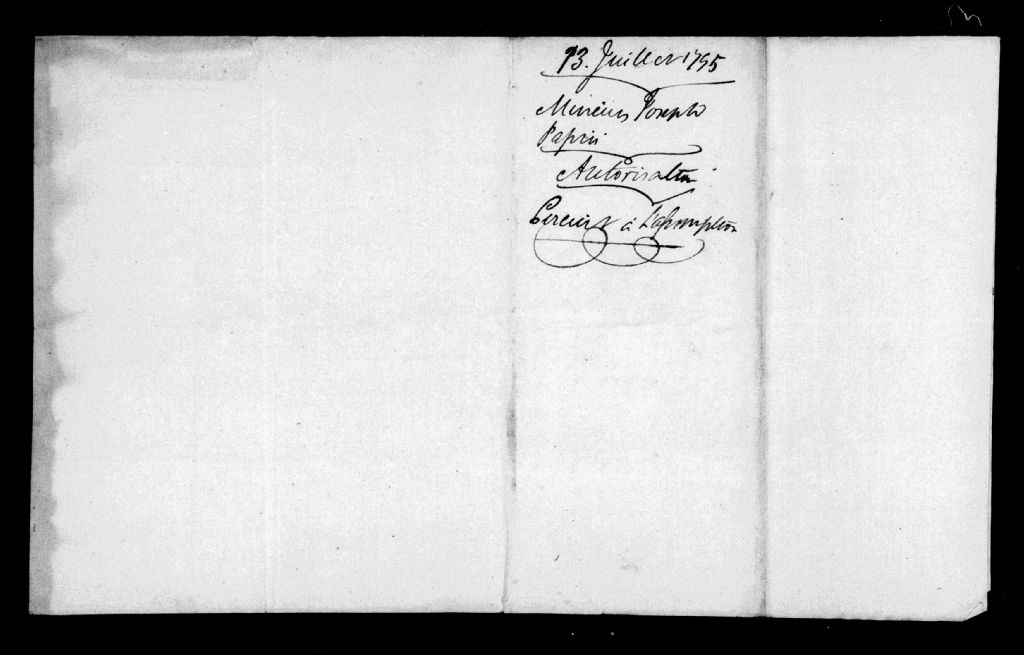 13. Juillet 1795
Mineurs Joseph
Papin
Autorisation
Circuit à L'assomption